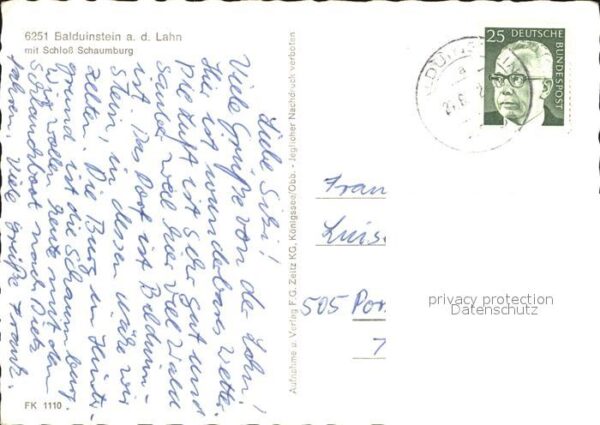 6251 Balduinstein a. d. Lahn
mit Schloß Schaumburg
Liebe Sibi!
Viele Grüße von der Lahn!
Hier ist wunderbares Wetter.
Die Luft ist sehr gut und
sauber weil hier viel Wald
ist. Das Dorf ist Balduin-
stein, in dessen Nähe wir
zelten. Die Burg im Hinter-
grund ist die Schaumburg.
Wir wollen heute mit dem
Schlauchboot nach Dietz
fahren. Viele Grüße Frank.
FK 1110
Aufnahme u. Verlag F. G. Zeitz KG, Königssee/Obb. - Jeglicher Nachdruck verboten
25 DEUTSCHE
BUNDESPOST
Fran
Luis
505 Por
7
privacy protection
Datenschutz